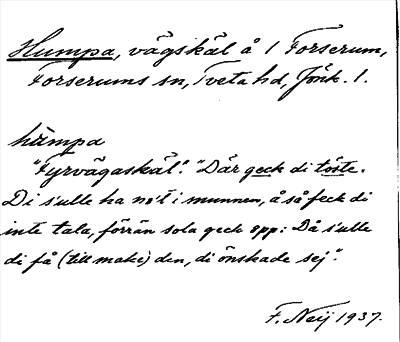 Humpa, vägskäl å 1 Forserum,
Forserums sn, Tveta hd, Jönk. l.
hùmpa
"Fyrvägaskäl". "Där geck di töste.
Di s'ulle ha no't i munnen, å så feck di
inte tala, förrän sola geck opp: Då s'ulle
di få (till make) den, di önskade sej".
F. Neij 1937.